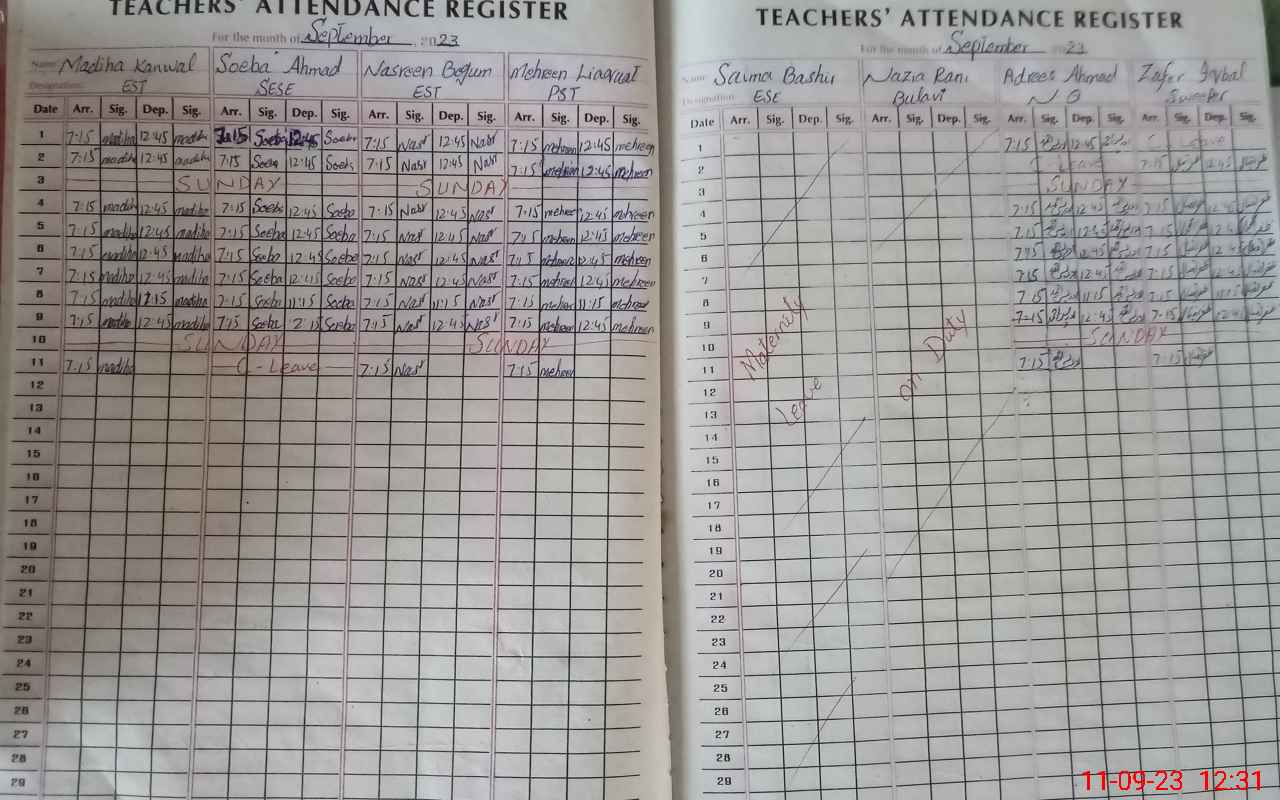 TEACHERS' ATTENDANCE REGISTER
For the month of September 2023
Name Madiha Kanwal Soeba Ahmad Nasreen Begum Mehreen Liaquat
Designation EST SESE EST PST
Date Arr. Sig. Dep. Sig. Arr. Sig. Dep. Sig. Arr. Sig. Dep. Sig. Arr. Sig. Dep. Sig.
1 7:15 madiha 12:45 madiha 7:15 Soeba 12:45 Soeba 7:15 Nasr 12:45 Nasr 7:15 mehreen 12:45 mehreen
2 7:15 madiha 12:45 madiha 7:15 Soeba 12:45 Soeba 7:15 Nasr 12:45 Nasr 7:15 mehreen 12:45 mehreen
3 SUNDAY SUNDAY
4 7:15 madiha 12:45 madiha 7:15 Soeba 12:45 Soeba 7:15 Nasr 12:45 Nasr 7:15 mehreen 12:45 mehreen
5 7:15 madiha 12:45 madiha 7:15 Soeba 12:45 Soeba 7:15 Nasr 12:45 Nasr 7:15 mehreen 12:45 mehreen
6 7:15 madiha 12:45 madiha 7:15 Soeba 12:45 Soeba 7:15 Nasr 12:45 Nasr 7:15 mehreen 12:45 mehreen
7 7:15 madiha 12:45 madiha 7:15 Soeba 12:45 Soeba 7:15 Nasr 12:45 Nasr 7:15 mehreen 12:45 mehreen
8 7:15 madiha madiha 7:15 Soeba 11:15 Soeba 7:15 Nasr 11:15 Nasr 7:15 mehreen 11:15 mehreen
9 7:15 madiha 12:45 madiha 7:15 Soeba Soeba 7:15 Nasr 12:45 Nasr 7:15 mehreen 12:45 mehreen
10 SUNDAY SUNDAY
11 7:15 madiha C-Leave 7:15 Nasr 7:15 mehreen
12
13
14
15
16
17
18
19
20
21
22
23
24
25
26
27
28
29
TEACHERS' ATTENDANCE REGISTER
For the month of September 2023
Name Saima Bashir Nazia Rani Adrees Ahmad Zafer Iqbal
Designation ESE Bulavi N Q Sweeper
Date Arr. Sig. Dep. Sig. Arr. Sig. Dep. Sig. Arr. Sig. Dep. Sig. Arr. Sig. Dep. Sig.
1 7:15 12:45 C Leave
2 Leave 7:15 12:45
3 SUNDAY
4 7:15 12:45 7:15 12:45
5 7:15 12:45 7:15 12:45
6 7:15 12:45 7:15 12:45
7 7:15 12:45 7:15 12:45
8 7:15 11:15 7:15
9 7-15 12:45 7:15 12:45
10 SUNDAY
11 7:15 7:15
Maternity
Leave
on Duty
12
13
14
15
16
17
18
19
20
21
22
23
24
25
26
27
28
29
11-09-23 12:31